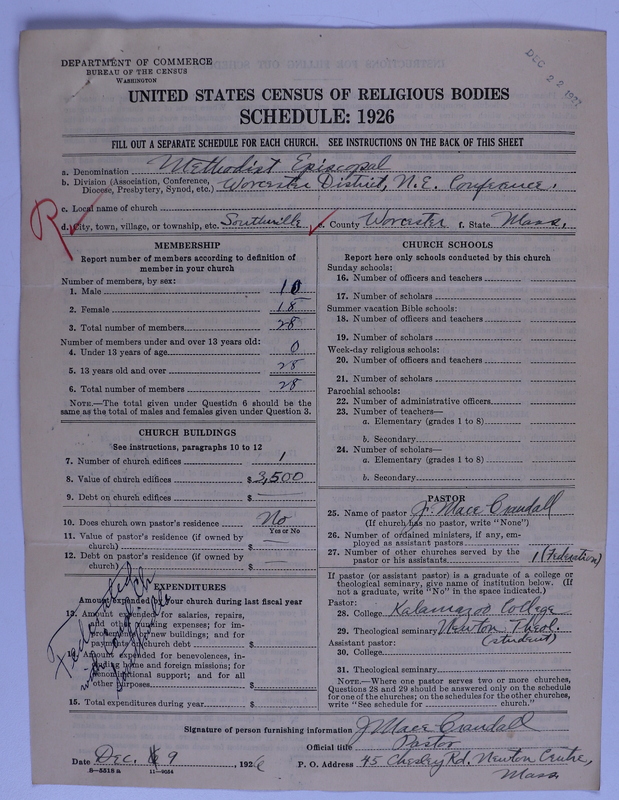 DEPARTMENT OF COMMERCE
BUREAU OF THE CENSUS
WASHINGTON
DEC 22 192
UNITED STATES CENSUS OF RELIGIOUS BODIES
SCHEDULE: 1926
FILL OUT A SEPARATE SCHEDULE FOR EACH CHURCH. SEE INSTRUCTIONS ON THE BACK OF THIS SHEET
a. Denomination Methodist Episcopal
b. Division (Association, Conference, Diocese, Presbytery, Synod, etc.) Worcester District, N.E. Confrance.
c. Local name of church
d. City, town, village, or township, etc. Southville e. County Worcester f. State Mass.
R
MEMBERSHIP
Report number of members according to definition of
member in your church
Number of members, by sex:
1. Male 10
2. Female 18
3. Total number of members 28
Number of members under and over 13 years old:
4. Under 13 years of age 0
5. 13 years old and over 28
6. Total number of members 28
NOTE.—The total given under Question 6 should be
same as the total of males and females given under Question 3.
CHURCH BUILDINGS
See instructions, paragraphs 10 to 12
7. Number of church edifices 1
8. Value of church edifices $3,500
9. Debt on church edifices $
10. Does church own pastor's residence No
Yes or No
11. Value of pastor's residence (if owned by
church) $
12. Debt on pastor's residence (if owned by
church) $
EXPENDITURES
Amount expended by your church during last fiscal year
13. Amount expended for salaries, repairs,
and other running expenses; for im-
provements or new buildings; and for
payments on church debt $
Amount expended for benevolences, in-
cluding home and foreign missions; for
denominational support; and for all
other purposes $
15. Total expenditures during year $
Federated
with
CHURCH SCHOOLS
Report here only schools conducted by this church
Sunday schools:
16. Number of officers and teachers
17. Number of scholars
Summer vacation Bible schools:
18. Number of officers and teachers
19. Number of scholars
Week-day religious schools:
20. Number of officers and teachers
21. Number of scholars
Parochial schools:
22. Number of administrative officers
23. Number of teachers—
a. Elementary (grades 1 to 8)
b. Secondary
24. Number of scholars—
a. Elementary (grades 1 to 8)
b. Secondary
PASTOR
25. Name of pastor J. Mace Crandall
(If church has no pastor, write "None")
26. Number of ordained ministers, if any, em-
ployed as assistant pastors
27. Number of other churches served by the
pastor or his assistants 1 (Federation)
If pastor (or assistant pastor) is a graduate of a college or
theological seminary, give name of institution below. (If
not a graduate, write "No" in the space indicated.)
Pastor:
28. College Kalamazoo College
29. Theological seminary Newton Theol.
Assistant pastor: (student)
30. College
31. Theological seminary
NOTE.—Where one pastor serves two or more churches,
Questions 28 and 29 should be answered only on the schedule
for one of the churches; on the schedules for the other churches,
write "See schedule for church."
Signature of person furnishing information J. Mace Crandall
Official title Pastor
Date Dec. 9, 1926 P. O. Address 45 Chesley Rd. Newton Centre,
Mass.
8-5518a 11-9054